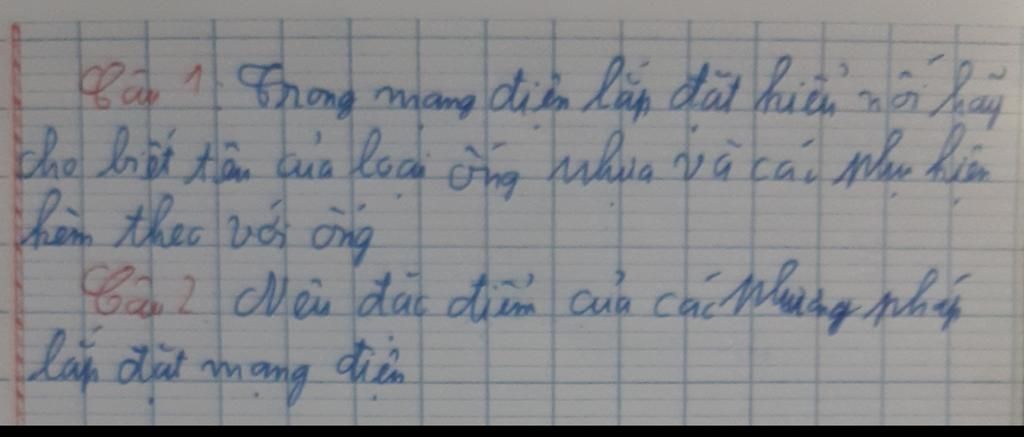 Câu 1: Trong mạng điện lắp đặt kiểu nổi hãy
cho biết tên của loại ống nhựa và các phụ kiện
kèm theo với ống
Câu 2 Nêu đặc điểm của các phương pháp
lắp đặt mạng điện